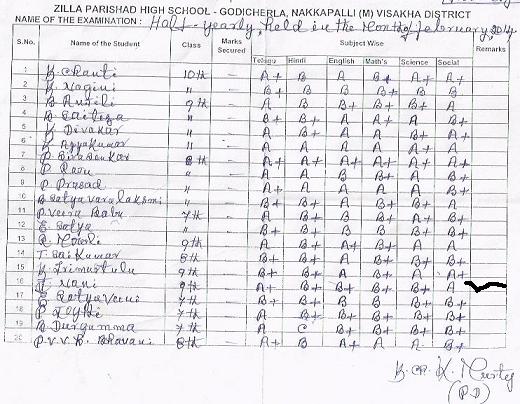 ZILLA PARISHAD HIGH SCHOOL - GODICHERLA, NAKKAPALLI (M) VISAKHA DISTRICT
NAME OF THE EXAMINATION : Half-yearly, held in the Month of february, 2014
S.No. Name of the Student Class Marks Secured Subject Wise Remarks
Telugu Hindi English Math's Science Social
1 K. Chanti 10th — A+ B A B+ A+ A+
2 K. Nagini " — B B B B+ B B
3 9th — A B B B+ B+ A
4 " — B+ B+ A B+ A B+
5 K. Divakar " — A B A A B+ A
6 K. Ayyakumar " — A A A A A A
7 P. Sivasankar 8th — A+ A+ A+ A+ A+ A+
8 P. Raju " — A B+ A A A B+
9 P. Prasad " — A+ A A A A B+
10 B. Satyavaralakshmi " — B+ B A B+ B+ A
11 P. Veera Babu 7th — A B A B+ A B+
12 E. Satya " — B+ B+ B B B+ B+
13 Mouli 9th — A B+ A+ B+ A A
14 T. Sai Kumar 8th — B+ B+ A B+ A B+
15 K. Srimustulu 9th — B+ B+ A B+ A A+
16 Nani 9th — A+ B+ B+ B+ B+ A
17 E. Satyaveni 7th — B+ B+ B B B+ B+
18 7th — A B+ B+ B+ A B+
19 Durgamma 7th — A C B+ B+ B+ B+
20 P.V.V.B. Bhavani 8th — A+ B A+ A A B+
K. Murty
(P.D)